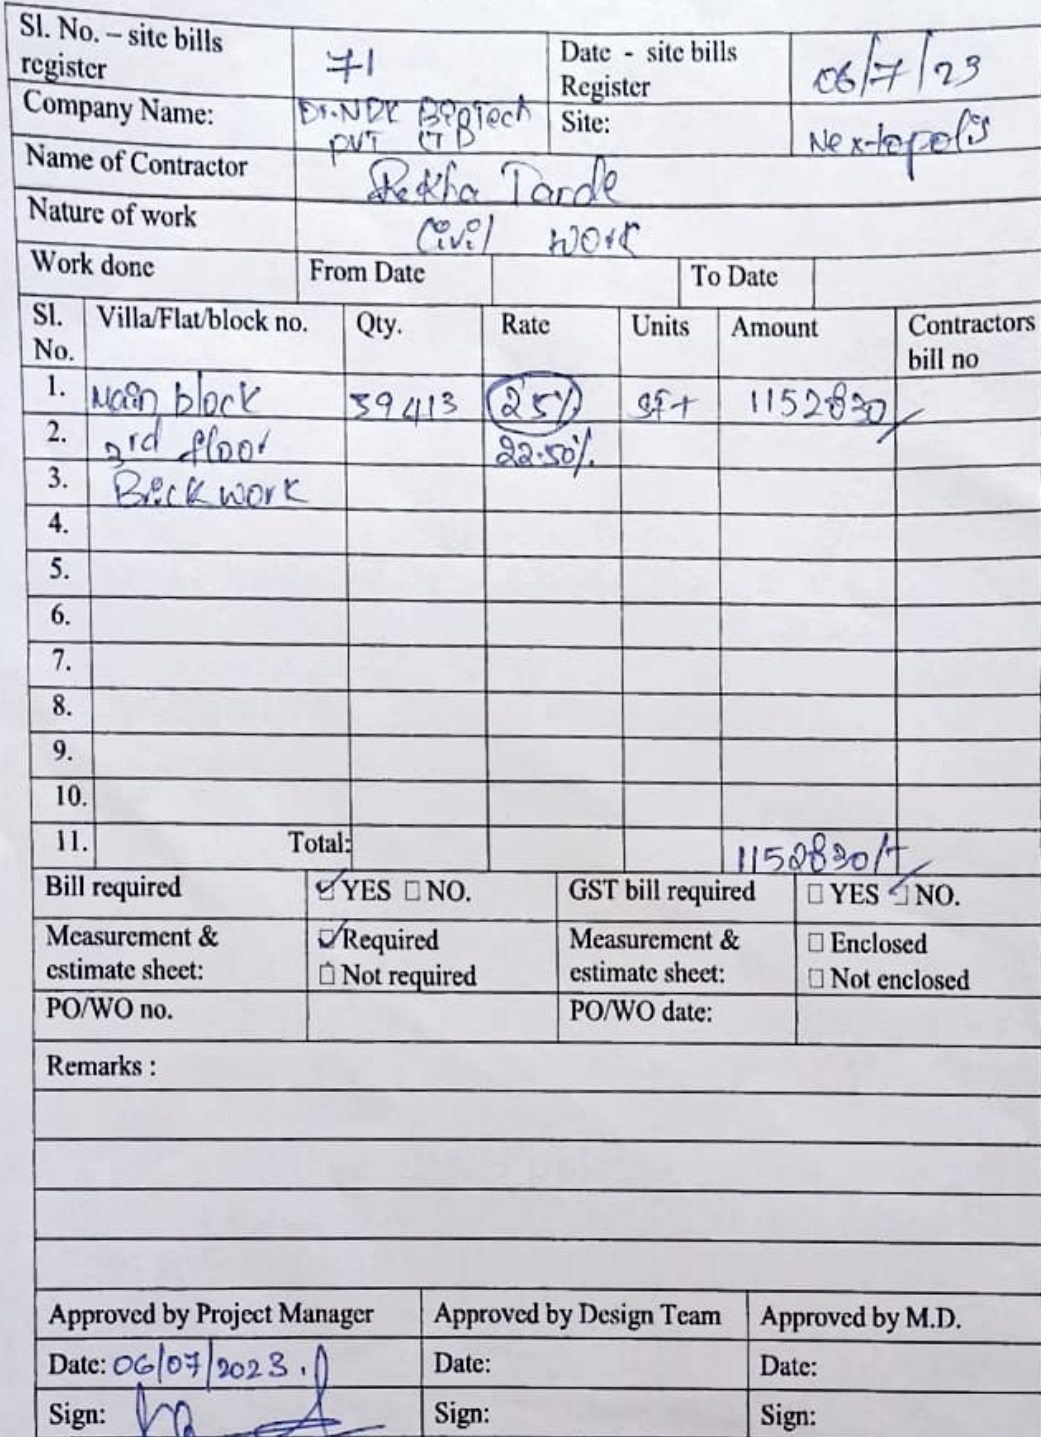 Sl. No. – site bills register 71 Date - site bills Register 06/7/23
Company Name: Dr. NDR BioTech PVT LTD Site: Nextopolis
Name of Contractor Rekha Tarde
Nature of work Civil work
Work done From Date To Date
Sl. No. Villa/Flat/block no. Qty. Rate Units Amount Contractors bill no
1. Main block 39413 25% SFT 1152830/
2. 3rd floor 22.50%
3. Brickwork
4.
5.
6.
7.
8.
9.
10.
11. Total: 1152830/-
Bill required ☑ YES ☐ NO. GST bill required ☐ YES ☑ NO.
Measurement & estimate sheet: ☑ Required ☐ Not required Measurement & estimate sheet: ☐ Enclosed ☐ Not enclosed
PO/WO no. PO/WO date:
Remarks :
Approved by Project Manager Approved by Design Team Approved by M.D.
Date: 06/07/2023. Date: Date:
Sign: Sign: Sign: